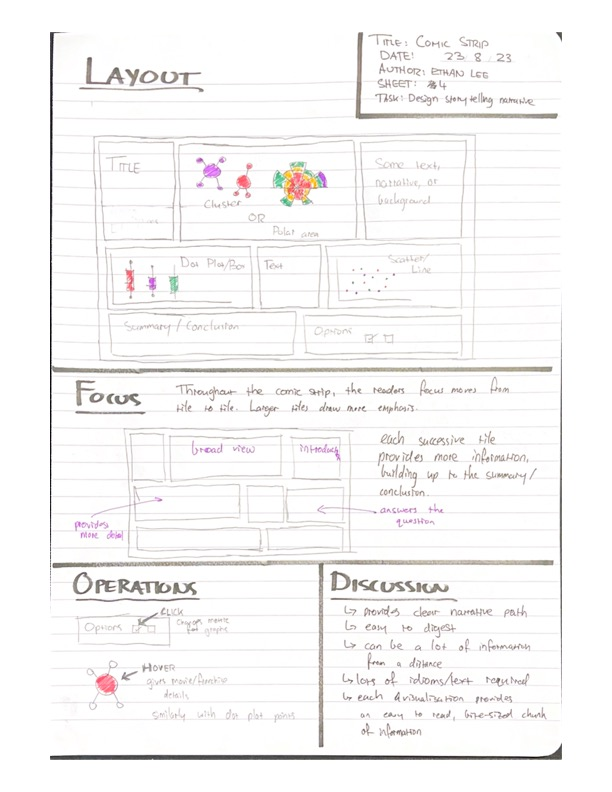 LAYOUT
TITLE: COMIC STRIP
DATE: 23.8.23
AUTHOR: ETHAN LEE
SHEET: #4
TASK: Design storytelling narrative
TITLE
Cluster
OR
Polar area
Some text,
narrative, or
background
Dot Plot/Box
Text
Scatter/
Line
Summary / Conclusion
Options
FOCUS
Throughout the comic strip, the readers focus moves from
tile to tile. Larger tiles draw more emphasis.
broad view
introduct
provides
more detail
answers the
question
each successive tile
provides more information,
building up to the summary/
conclusion.
OPERATIONS
CLICK
Options
Changes
for graphs
HOVER
gives movie/
details
similarly with dot plot points
DISCUSSION
↳ provides clear narrative path
↳ easy to digest
↳ can be a lot of information
from a distance
↳ lots of idioms/text required
↳ each visualisation provides
an easy to read, bite-sized chunk
of information